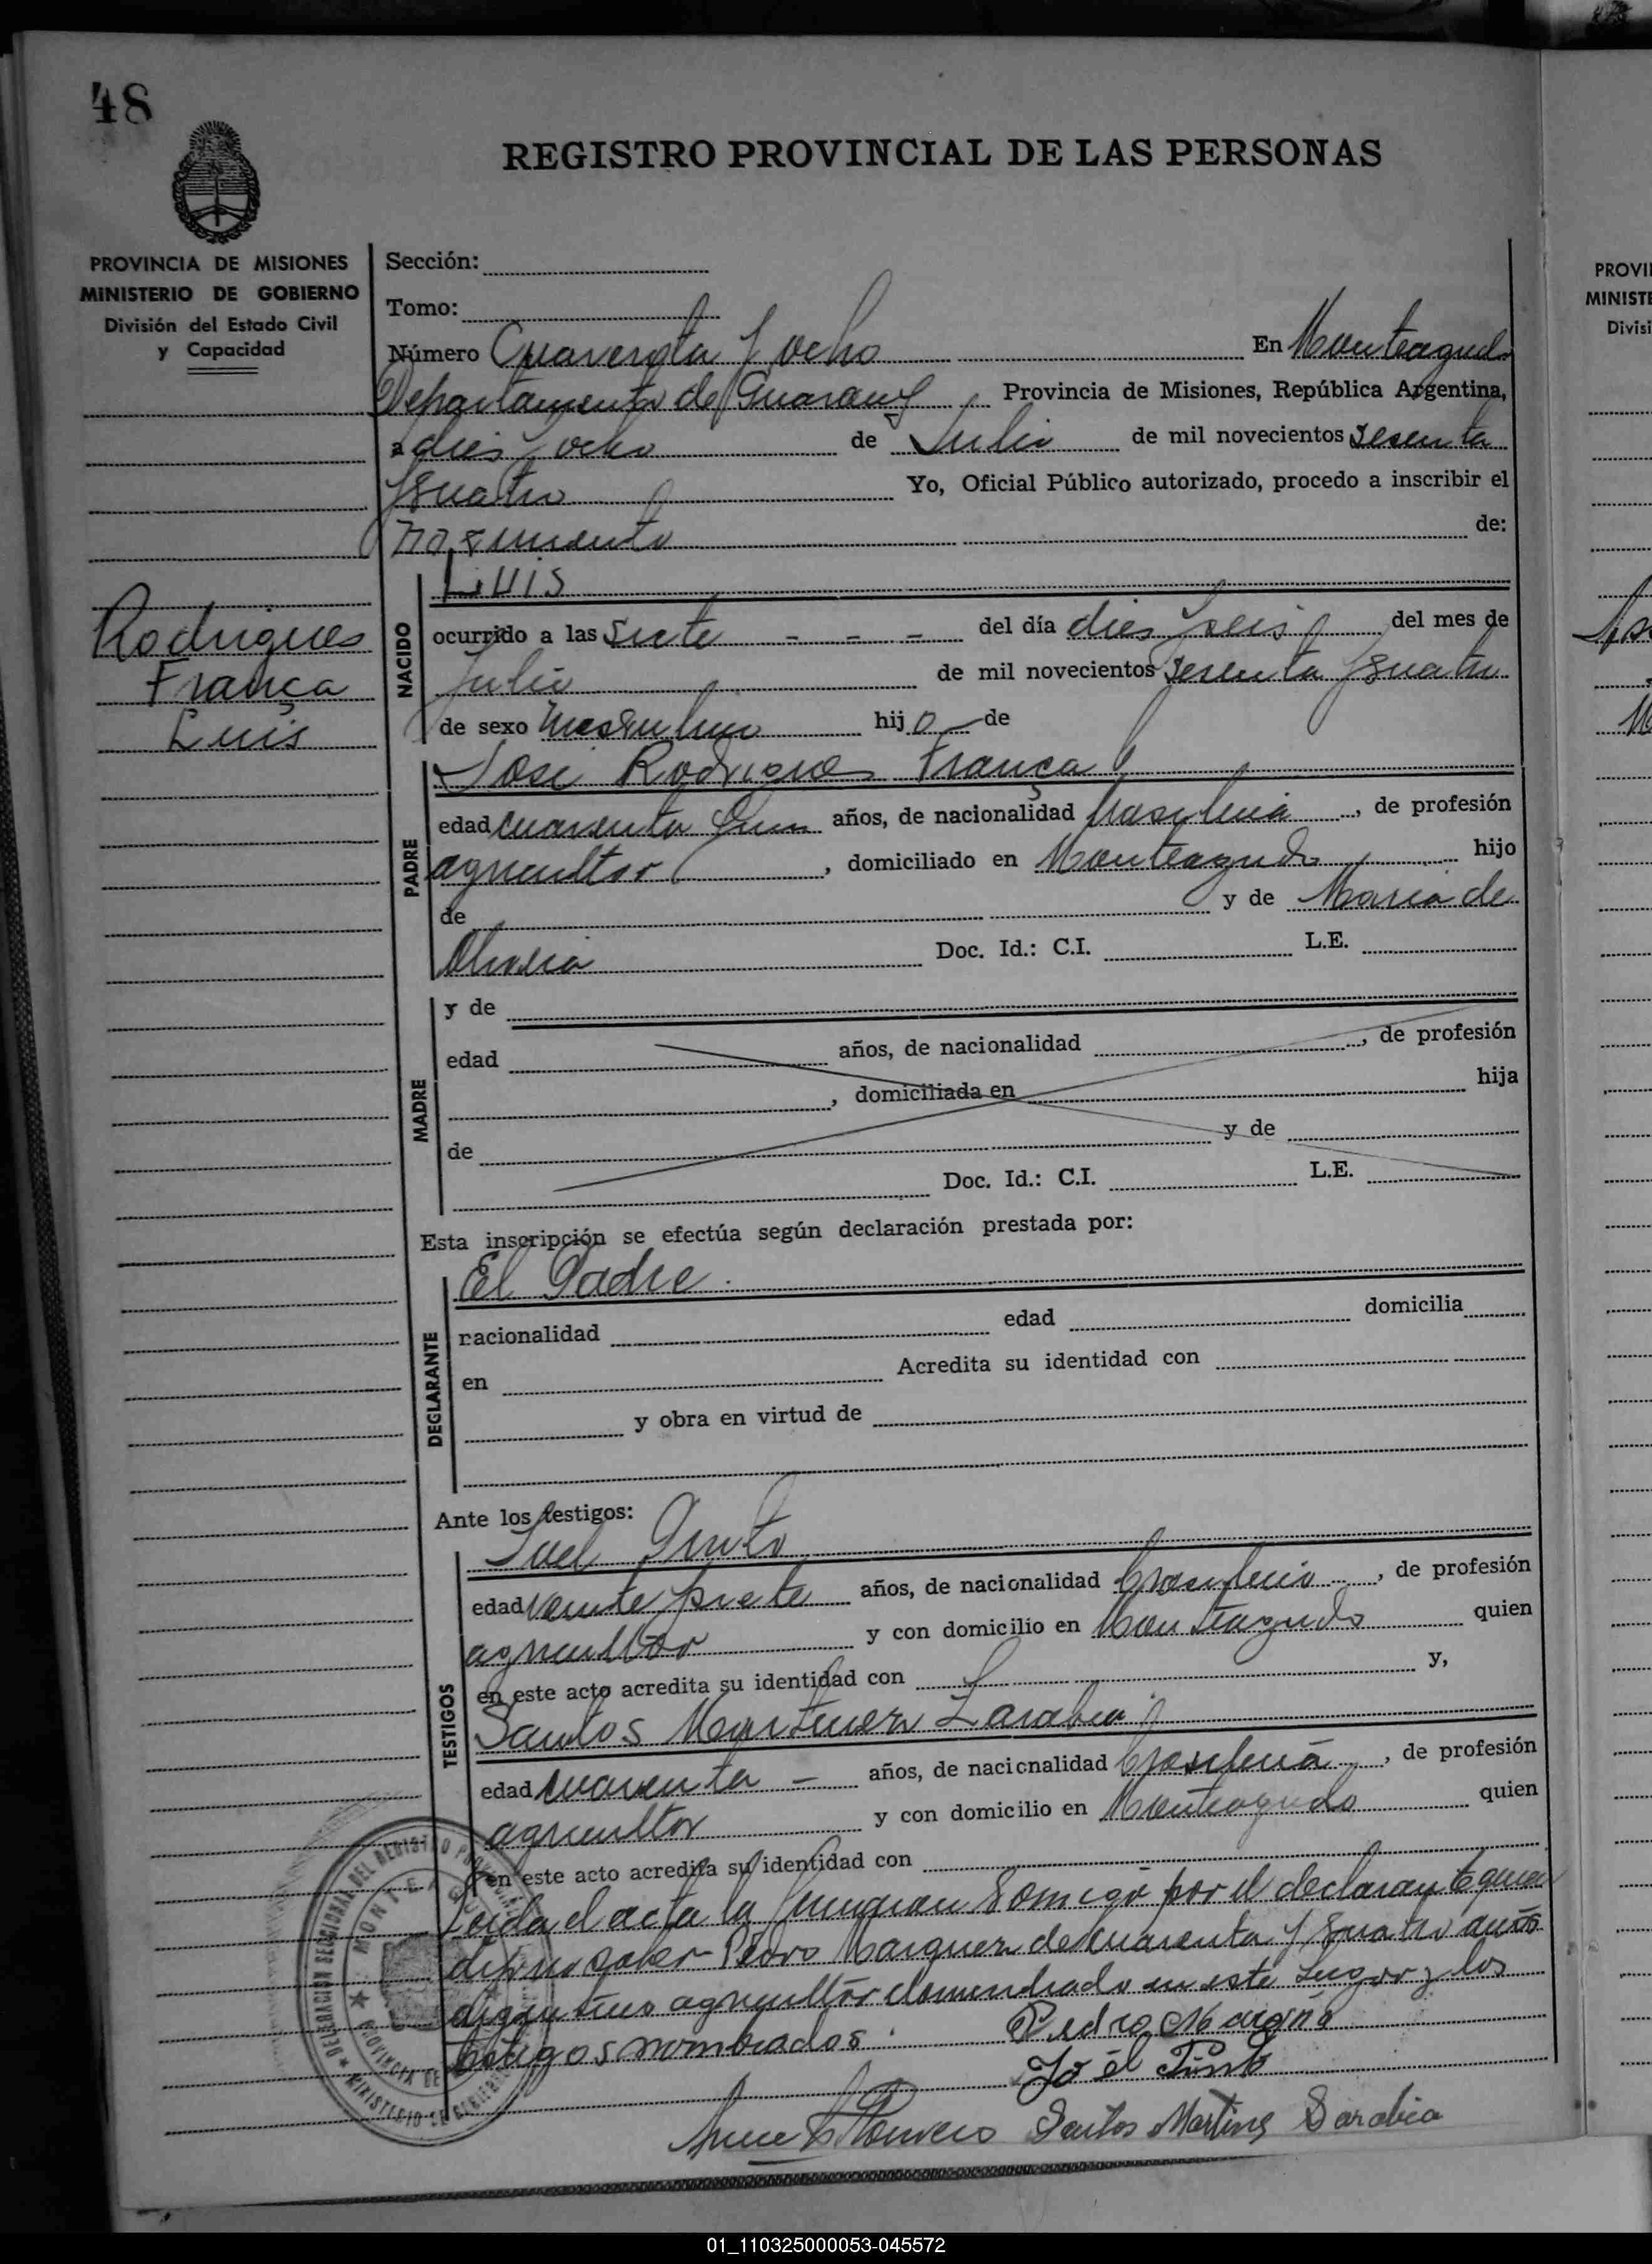 48
REGISTRO PROVINCIAL DE LAS PERSONAS
PROVINCIA DE MISIONES
MINISTERIO DE GOBIERNO
División del Estado Civil
y Capacidad
Rodrigues
França
Luis
Sección:
Tomo:
Número Cuarenta y ocho En Monteagudo
Departamento de Guarany Provincia de Misiones, República Argentina,
a dies y ocho de Julio de mil novecientos sesenta
y cuatro Yo, Oficial Público autorizado, procedo a inscribir el
nacimiento de:
NACIDO
Luis
ocurrido a las siete - - - del día dies y seis del mes de
Julio de mil novecientos sesenta y cuatro
de sexo masculino hijo de
PADRE
José Rodrigues França
edad cuarenta y un años, de nacionalidad brasilena, de profesión
agricultor, domiciliado en Monteagudo hijo
de y de Maria de
Olivera Doc. Id.: C.I. L.E.
MADRE
y de
edad años, de nacionalidad , de profesión
, domiciliada en hija
de y de
Doc. Id.: C.I. L.E.
Esta inscripción se efectúa según declaración prestada por:
DECLARANTE
El Padre
nacionalidad edad domicilia
en Acredita su identidad con
y obra en virtud de
Ante los testigos:
TESTIGOS
edad veinte y siete años, de nacionalidad brasilena, de profesión
agricultor y con domicilio en Monteagudo quien
en este acto acredita su identidad con y,
Santos Martinez Zarabia
edad cuarenta - años, de nacionalidad brasilena, de profesión
agricultor y con domicilio en Monteagudo quien
en este acto acredita su identidad con
Leida el acta la firman comigo por el declarante quien
dijo no saber Pedro Marquez de cuarenta y cuatro años
argentino agricultor domiciliado en este lugar y los
testigos nombrados.
Joél Pinto
Santos Martins Sarabia
PROVI
MINISTE
Divisi
01_110325000053-045572